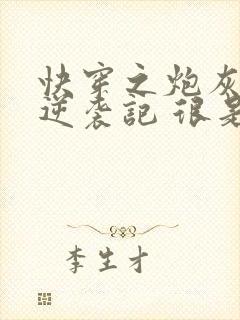 快穿之炮灰
逆袭記 很是
李生才